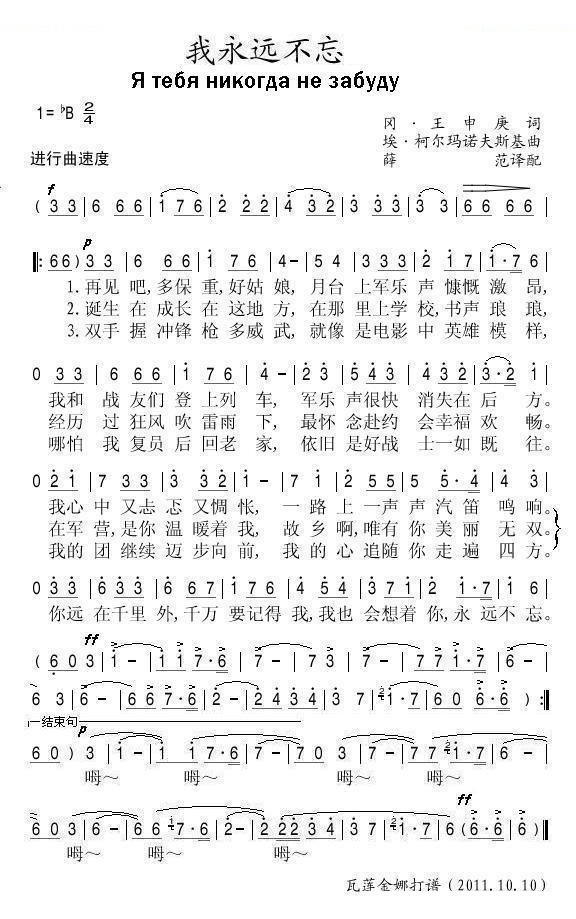 我永远不忘
Я тебя никогда не забуду
1= ♭B 2/4
冈·王申庚词
埃·柯尔玛诺夫斯基曲
进行曲速度
薛 范译配
f
( 3 3 | 6 6 6 | 1 7 6 | 2 2 2 | 4 3 2 | 3 3 3 | 3 3 | 6 6 6 6 |
p
6 6 ) 3 3 | 6 6 6 | 1 7 6 | 4 - | 5 4 | 3 3 3 | 2 1 7 | 1 · 7 6 |
1.再见吧,多保重,好姑娘,月台上军乐声慷慨激昂,
2.诞生在成长在这地方,在那里上学校,书声琅琅,
3.双手握冲锋枪多威武,就像是电影中英雄模样,
0 3 3 | 6 6 6 | 1 7 6 | 4 - | 2 3 4 | 5 4 3 | 4 3 2 | 3 · 2 1 |
我和战友们登上列车,军乐声很快消失在后方。
经历过狂风吹雷雨下,最怀念赴约会幸福欢畅。
哪怕我复员后回老家,依旧是好战士一如既往。
0 2 1 | 7 3 3 | 3 2 1 | 1 - | 7 1 | 2 5 5 | 5 5 · 4 | 4 3 |
我心中又忐忑又惆怅,一路上一声声汽笛鸣响。
在军营,是你温暖着我,故乡啊,唯有你美丽无双。
我的团继续迈步向前,我的心追随你走遍四方。
0 3 3 | 6 3 3 | 6 6 7 | 1 7 6 | 4 5 4 | 3 2 | 1 · 7 | 1 6 |
你远在千里外,千万要记得我,我也会想着你,永远不忘。
ff
( 6 0 3 | 1 - | 1 1 7 · 6 | 7 - | 7 3 | 7 - | 7 7 1 · 7 | 6 - |
6 3 | 6 - | 6 6 7 · 6 | 2 - | 2 4 3 4 | 3 7 | 1 · 7 | 6 0 6 · 6 ) :|
结束句
p
6 0 ) 3 | 1 - | 1 1 7 · 6 | 7 - | 7 0 3 | 7 - | 7 7 1 · 7 | 6 - |
呣～ 呣～ 呣～ 呣～
ff
6 0 3 | 6 - | 6 6 7 · 6 | 2 - | 2 2 3 4 3 4 | 3 7 | 1 · 7 | 6 ( 6 · 6 | 6 ) ‖
呣～ 呣～
瓦莲金娜打谱(2011.10.10)